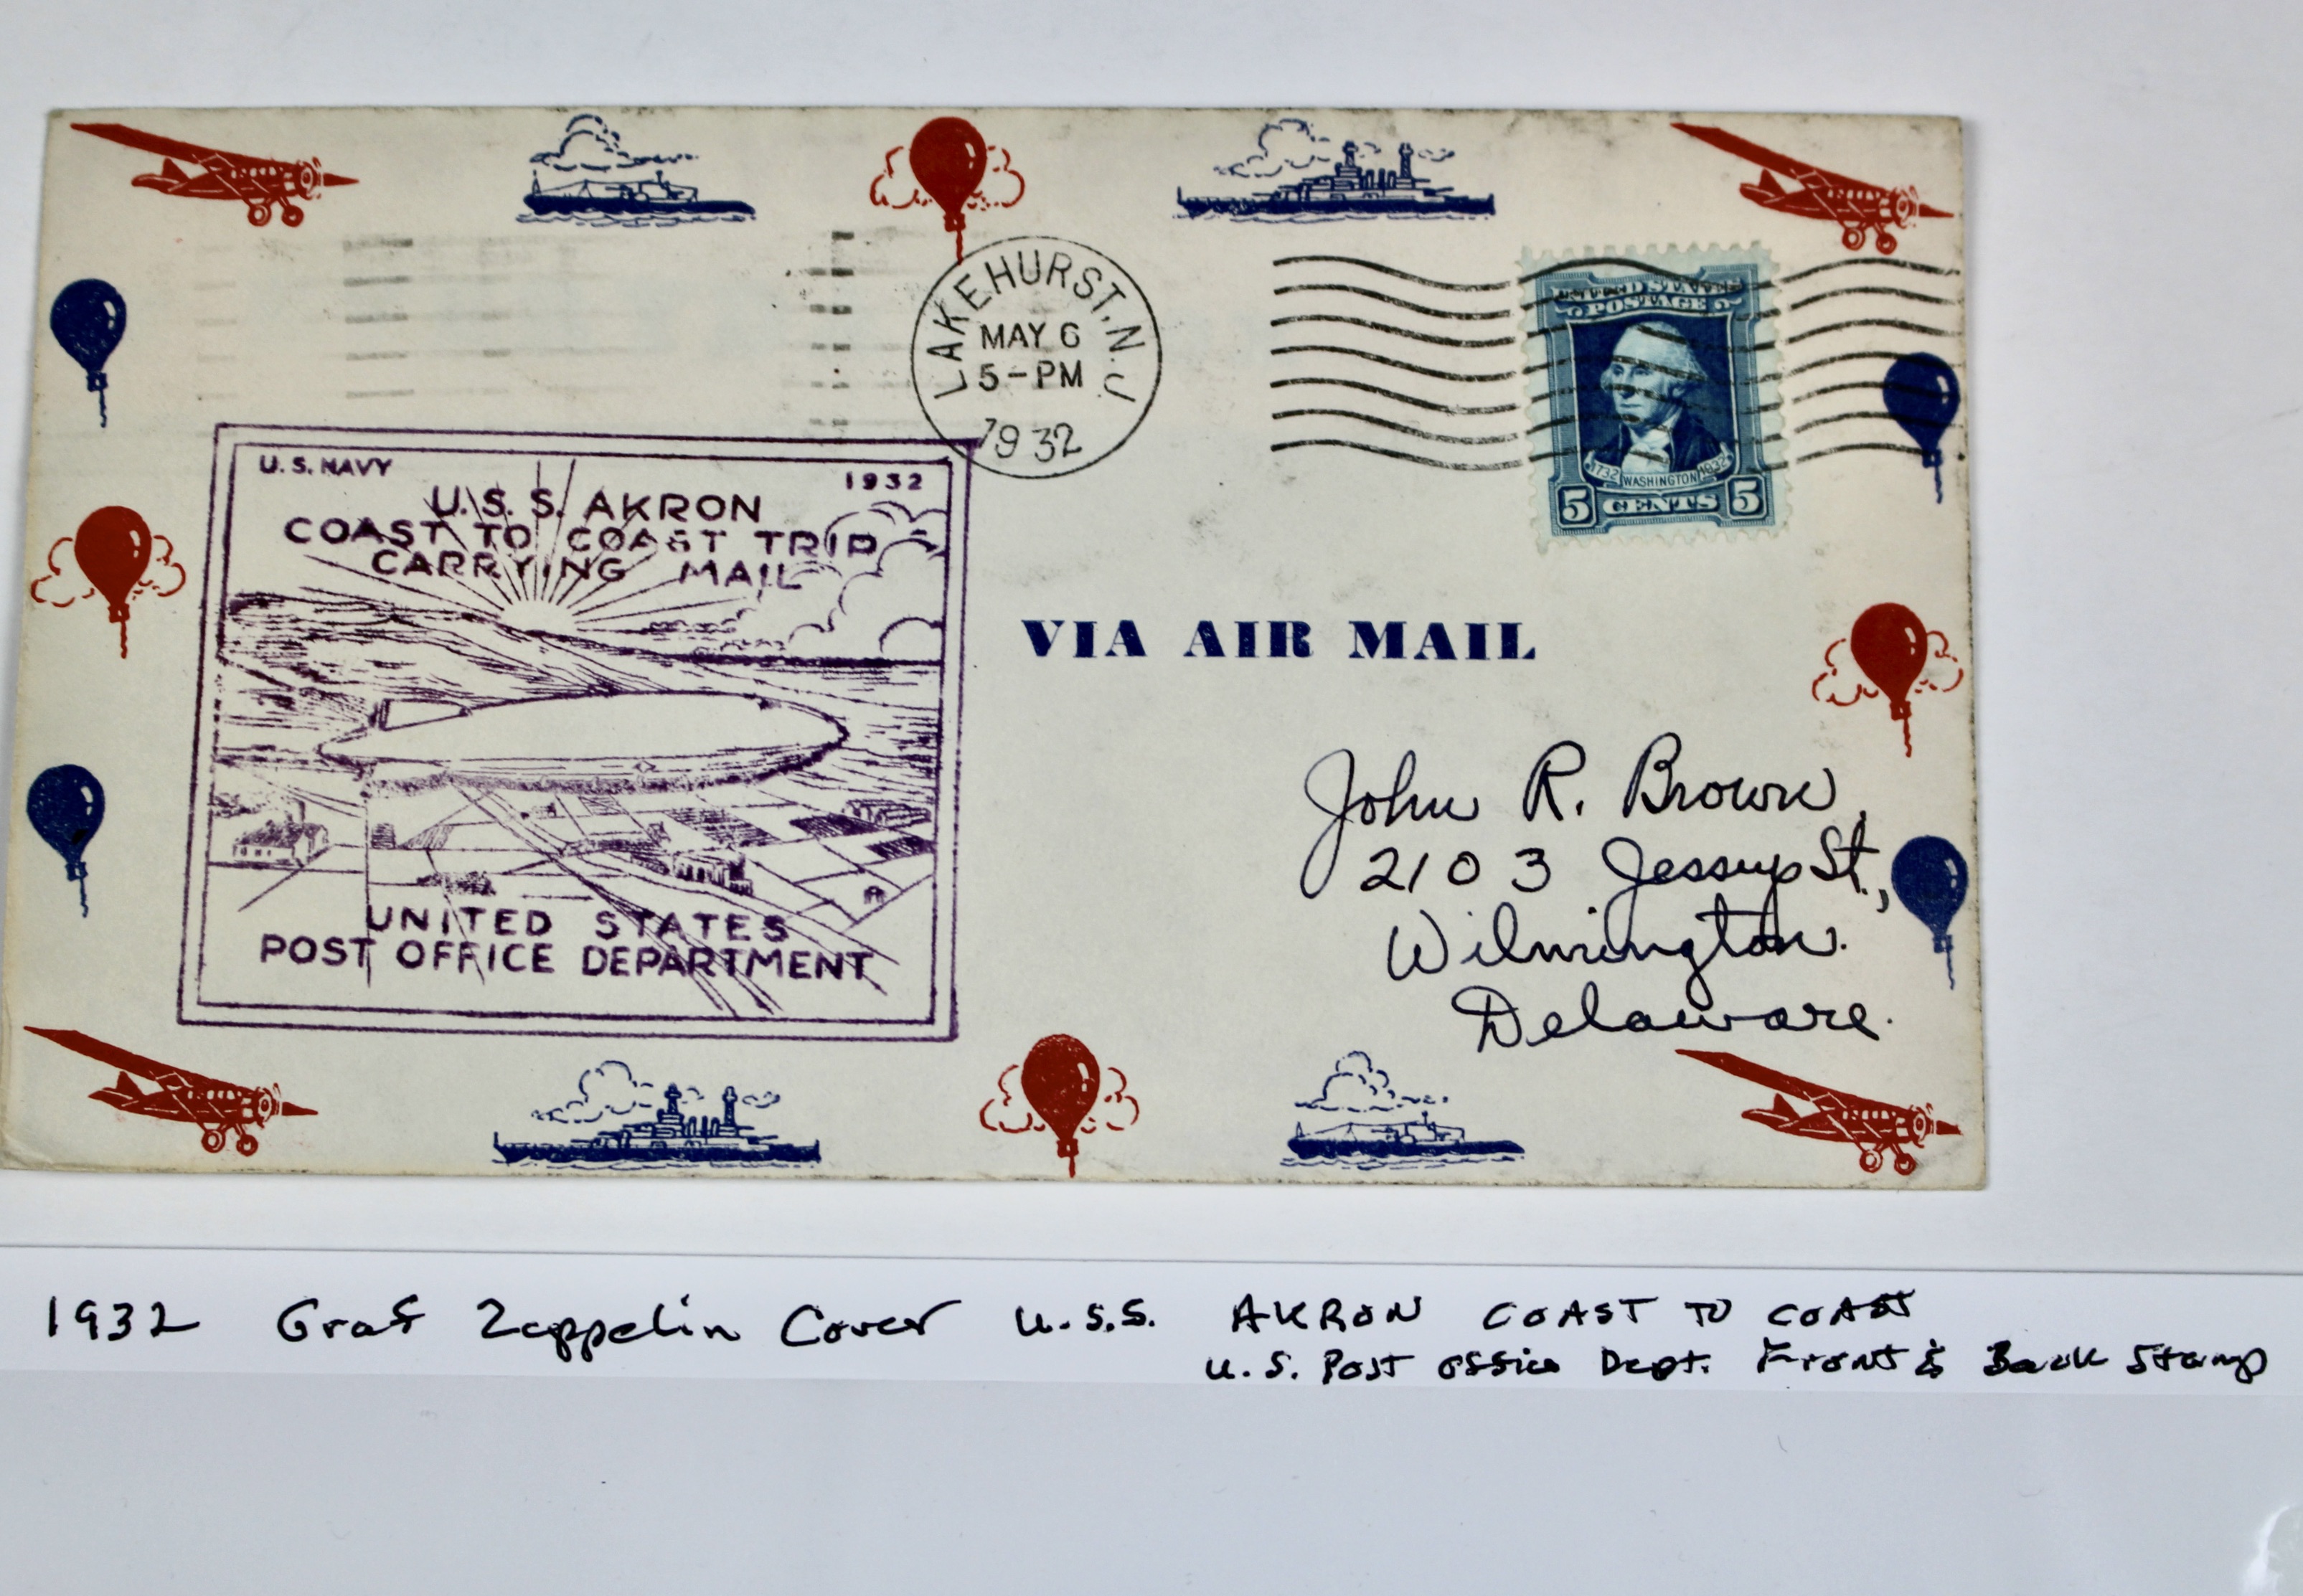 LAKEHURST, N.J.
MAY 6
5-PM
1932
UNITED STATES
POSTAGE
1732 WASHINGTON 1932
5 CENTS 5
U.S. NAVY 1932
U.S.S. AKRON
COAST TO COAST TRIP
CARRYING MAIL
UNITED STATES
POST OFFICE DEPARTMENT
VIA AIR MAIL
John R. Brown,
2103 Jessup St.,
Wilmington.
Delaware.
1932 Graf Zeppelin Cover U.S.S. AKRON COAST TO COAST
U.S. Post Office Dept. Front & Back Stamp